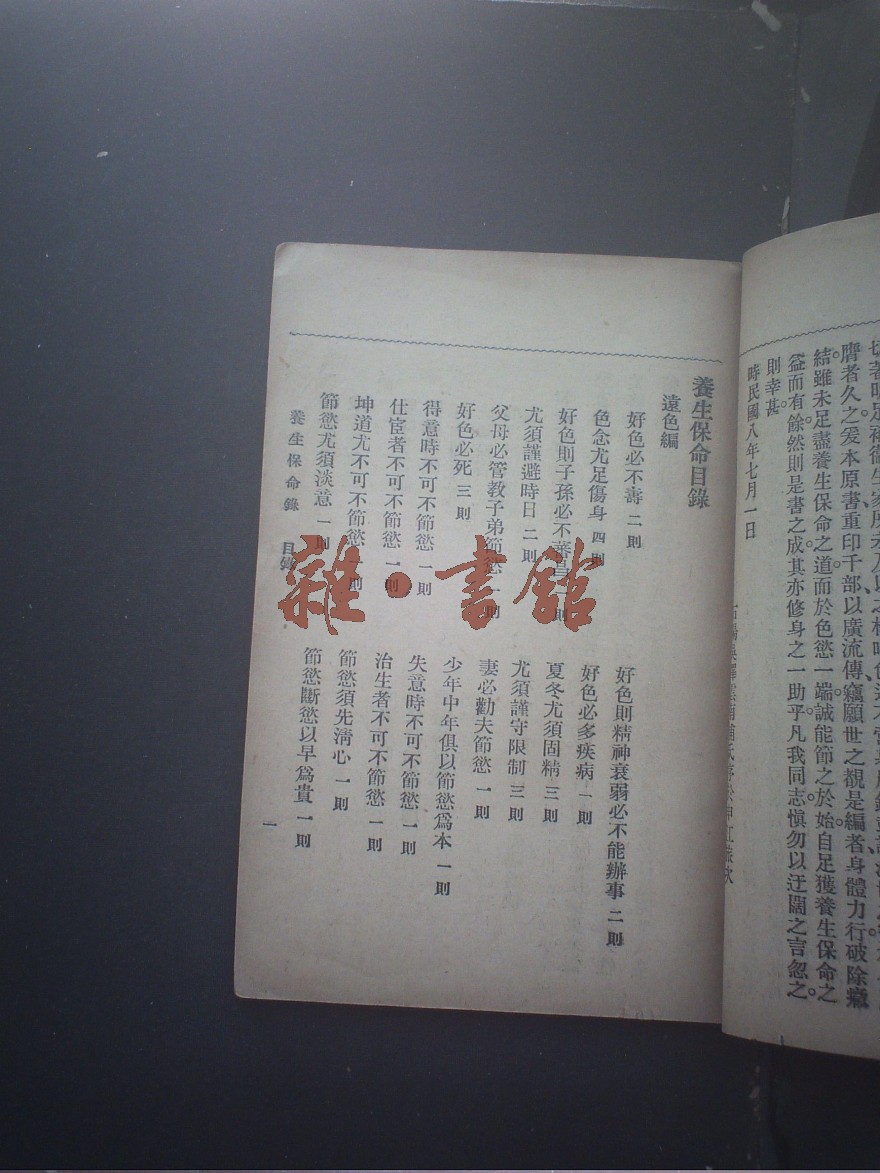 切著明足補衞生家所未及以之
膺者久之爰本原書重印千部以廣流傳竊願世之覩是編者身體力行破除癥
結雖未足盡養生保命之道而於色慾一端誠能節之於始自足獲養生保命之
益而有餘然則是書之成其亦修身之一助乎凡我同志愼勿以迂闊之言忽之
則幸甚
時民國八年七月一日
養生保命目錄
遠色編
好色必不壽 二則
好色則精神衰弱必不能辦事 二則
色念尤足傷身 四則
好色必多疾病 一則
好色則子孫必不蕃昌 則
夏冬尤須固精 三則
尤須謹避時日 二則
尤須謹守限制 三則
父母必管教子弟節慾 一則
妻必勸夫節慾 一則
好色必死 三則
少年中年俱以節慾爲本 一則
得意時不可不節慾 一則
失意時不可不節慾 一則
仕宦者不可不節慾 一則
治生者不可不節慾 一則
坤道尤不可不節慾 一則
節慾須先淸心 一則
節慾尤須淡意 一則
節慾斷慾以早爲貴 一則
養生保命錄 目錄
一
雜·書館